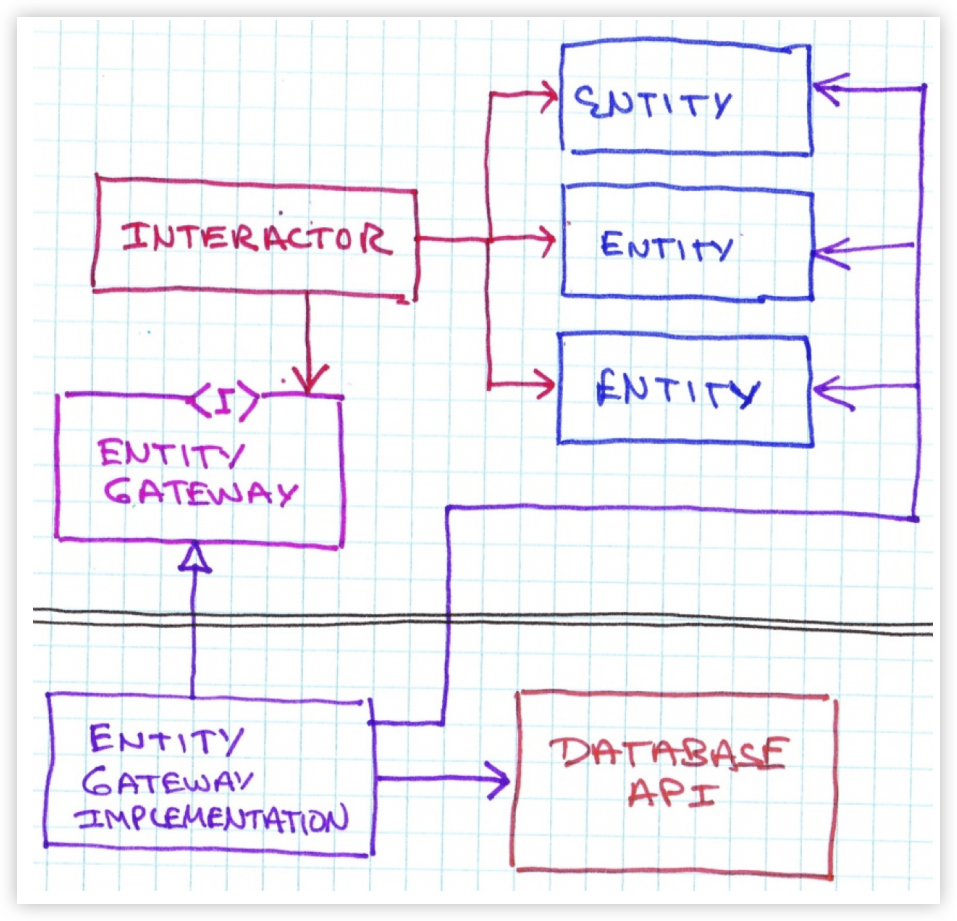 ENTITY
INTERACTOR
ENTITY
ENTITY
<I>
ENTITY
GATEWAY
ENTITY
GATEWAY
IMPLEMENTATION
DATABASE
API